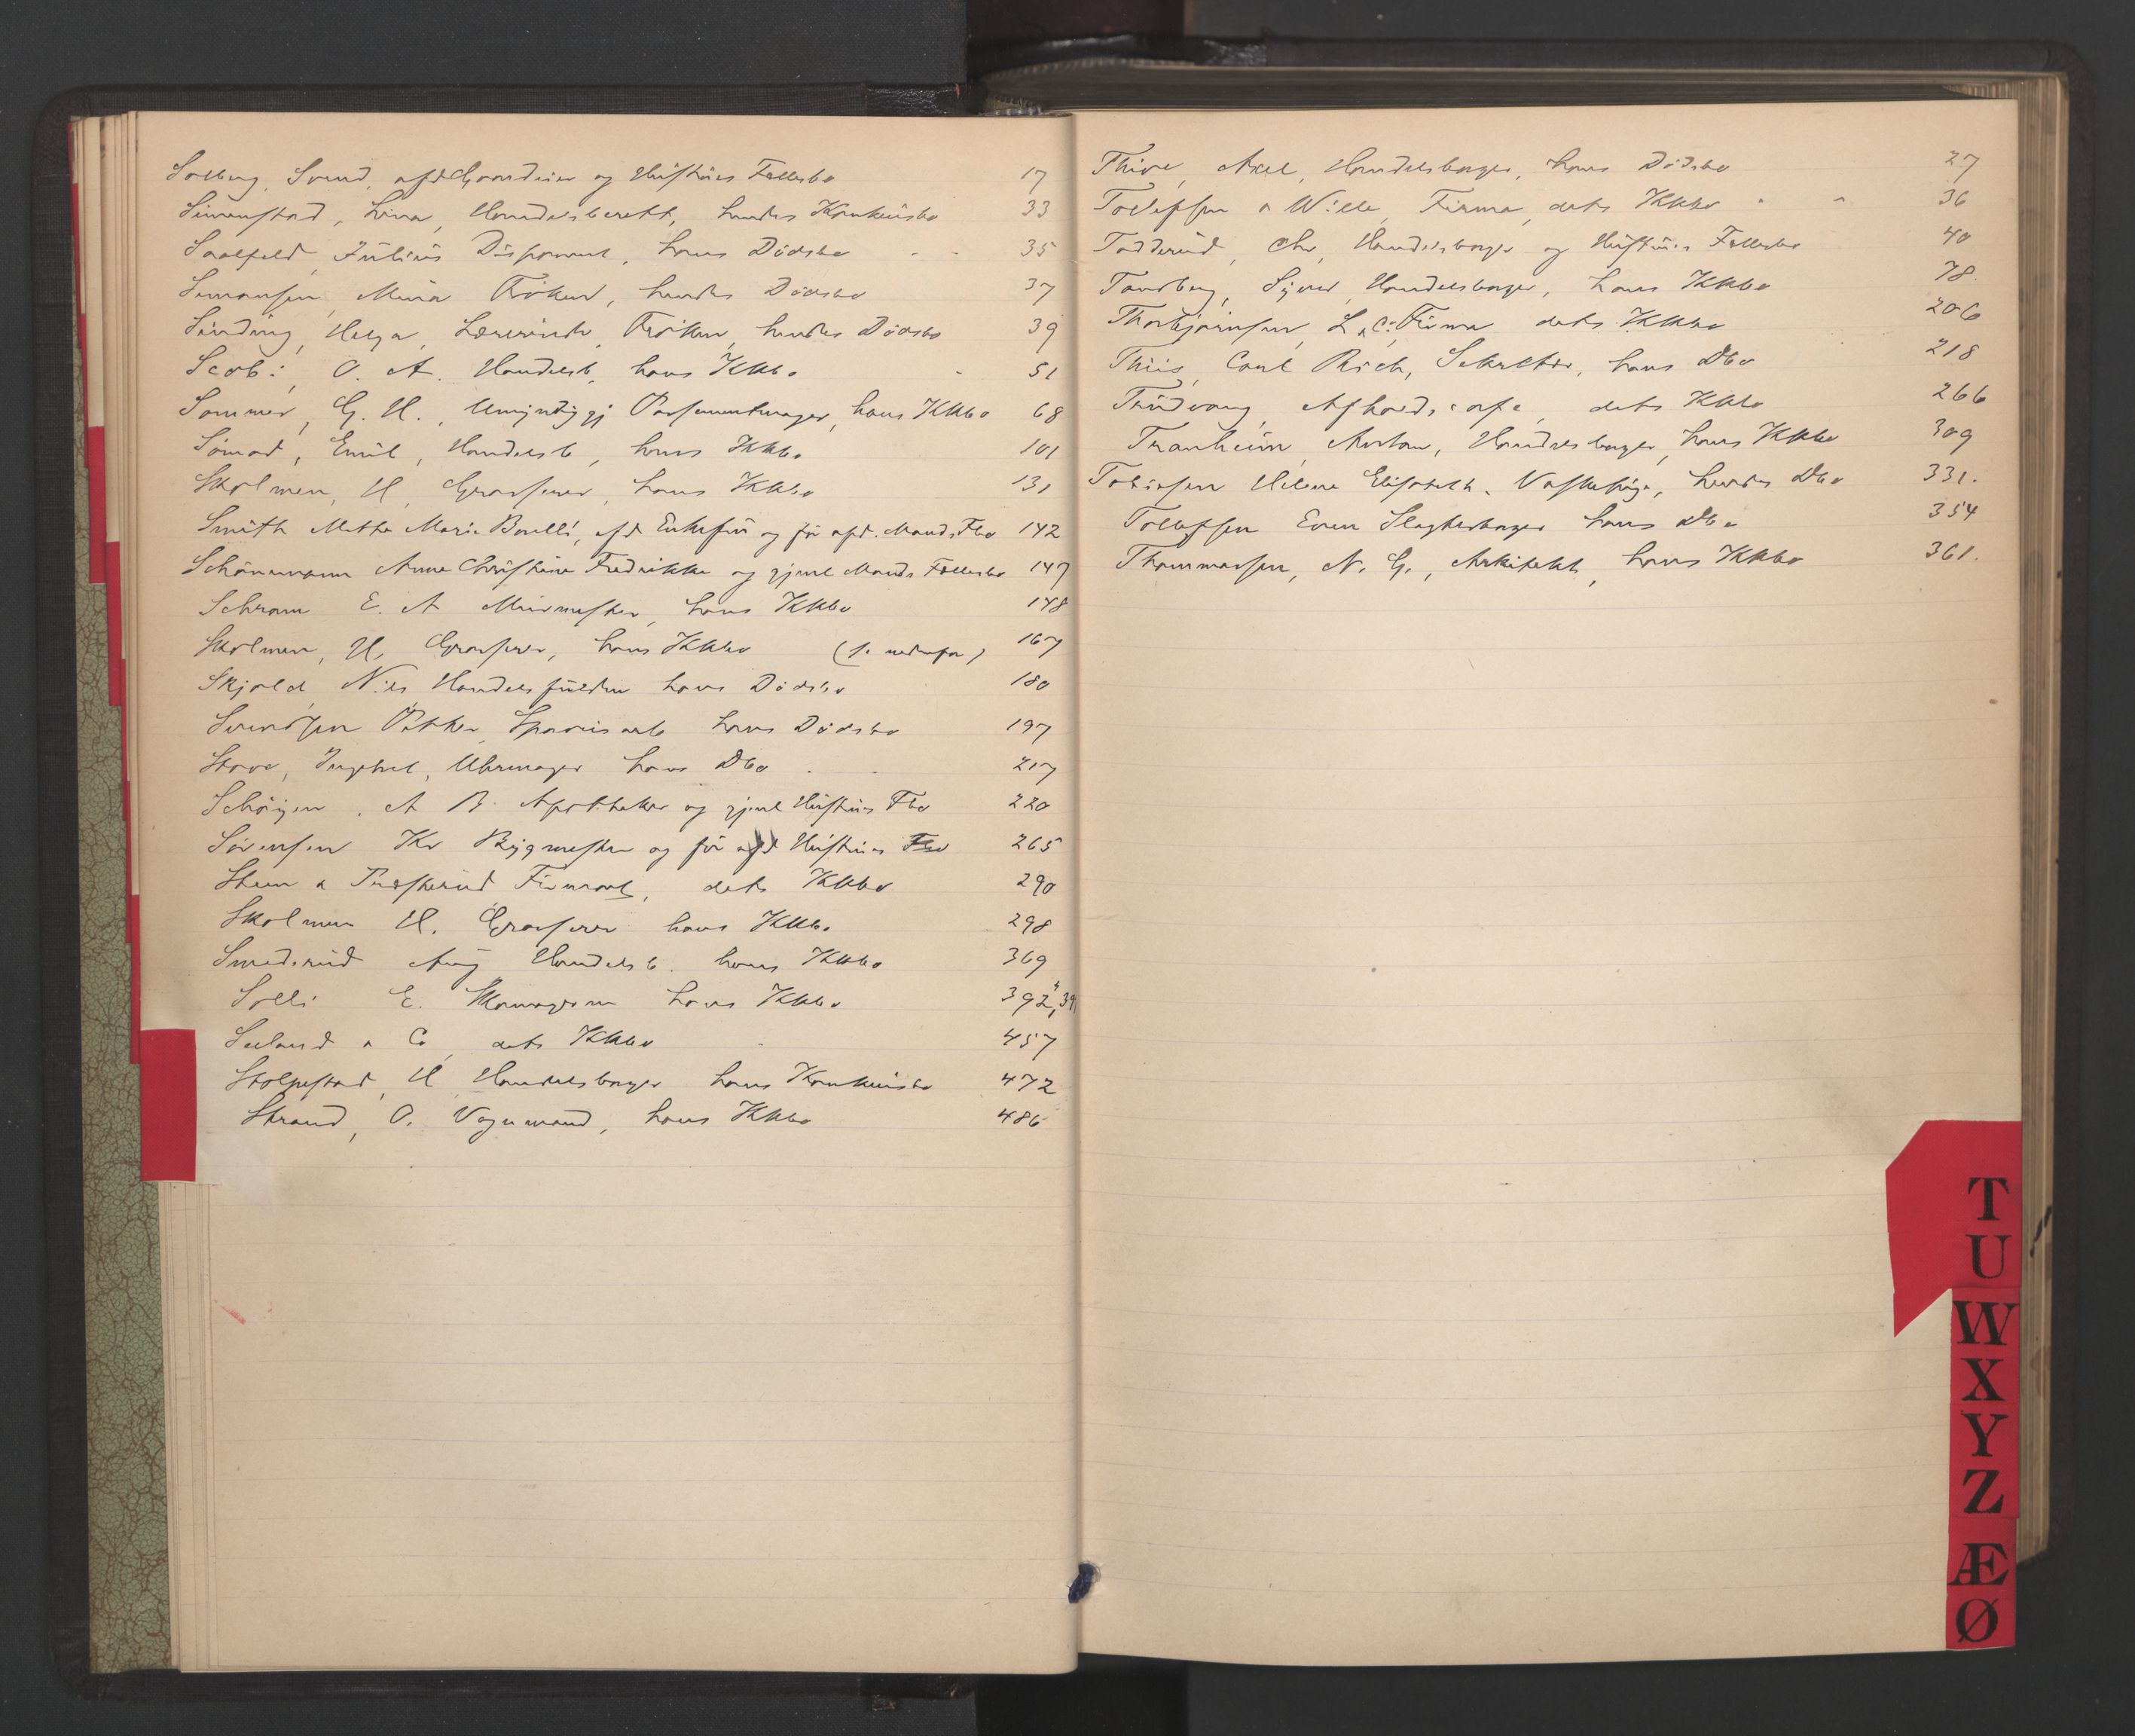 Solberg, Svend, afd Gaardeier og Hustrues Fællesbo 17
Simenstad, Lina, Handelsberett, hendes Konkursbo 33
Saalfeld, Julius Disponent, hans Dödsbo 35
Simonsen, Mina Fröken, hendes Dödsbo 37
Sinding, Helga, Lærerinde, Fröken, hendes Dödsbo 39
O. A. Handelsb, hans Kkbo 51
Sommer, G. H., Parfumentmager, hans Kkbo 68
Emil, Handelsb, hans Kkbo 101
Skolmen, H, Grosserer, hans Kkbo 131
Smith Mette Marie afd Enkefru og før afd. Mands Fbo 142
Schönemann Anne Christine Fredrikke og gjenl Mands Fællesbo 147
Schram E. A Murmester, hans Kkbo 148
Skolmen, H, Grosserer, hans Kkbo (s. nedenfor) 167
Skjold, Nils Handelsfuldm hans Dödsbo 180
Svendsen Petter hans Dödsbo 197
Uhrmager hans Dbo 217
A B. Apotheker og gjenl Hustrues Fbo 220
Sörensen Kr Bygmester og før afd Hustrues Fbo 265
Steen & Præsterud Firmaet, dets Kkbo 290
Skolmen H. Grosserer hans Kkbo 298
Smedsrud Aug Handelsb. hans Kkbo 369
Solli E. Skomagerm hans Kkbo 392, 39
Seeland & Co, dets Kkbo 457
Stolpestad, H Handelsborger hans Konkursbo 472
Strand, O. Vognmand, hans Kkbo 486
Axel, Handelsborger, hans Dödsbo 27
Tollefsen & Wille, Firma, dets Kkbo 36
Todderud, Chr, Handelsborger og Hustrues Fællesbo 40
Tandberg, Sigurd, Handelsborger, hans Kkbo 78
Thorbjörnsen, L, & C: Firma dets Kkbo 206
Thiis, Carl Rich, Sekretær, hans Dbo 218
Trudvang, Afholdscafe, dets Kkbo 266
Tranheim, Anton, Handelsborger, hans Kkbo 309
Tobiasen Helene Elisabeth, Vaskepige, hendes Dbo 331.
Tollefsen Even Slagterborger hans Dbo 354
Thommassen, N. G., Arkitekt, hans Kkbo 361.
T
U
W
X
Y
Z
Æ
Ø